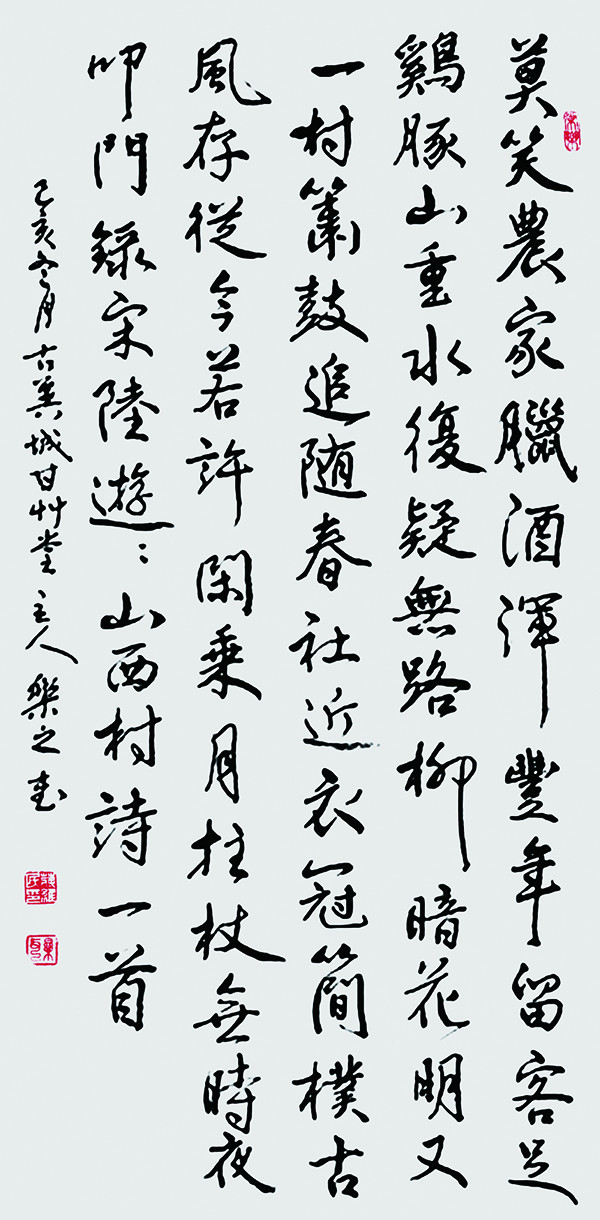 莫笑農家臘酒渾豐年留客足
鷄豚山重水復疑無路柳暗花明又
一村簫鼓追随春社近衣冠簡樸古
風存從今若許閑乘月拄杖無時夜
叩門錄宋陸遊〻山西村詩一首
己亥冬月古冀城甘艸堂主人樂之書